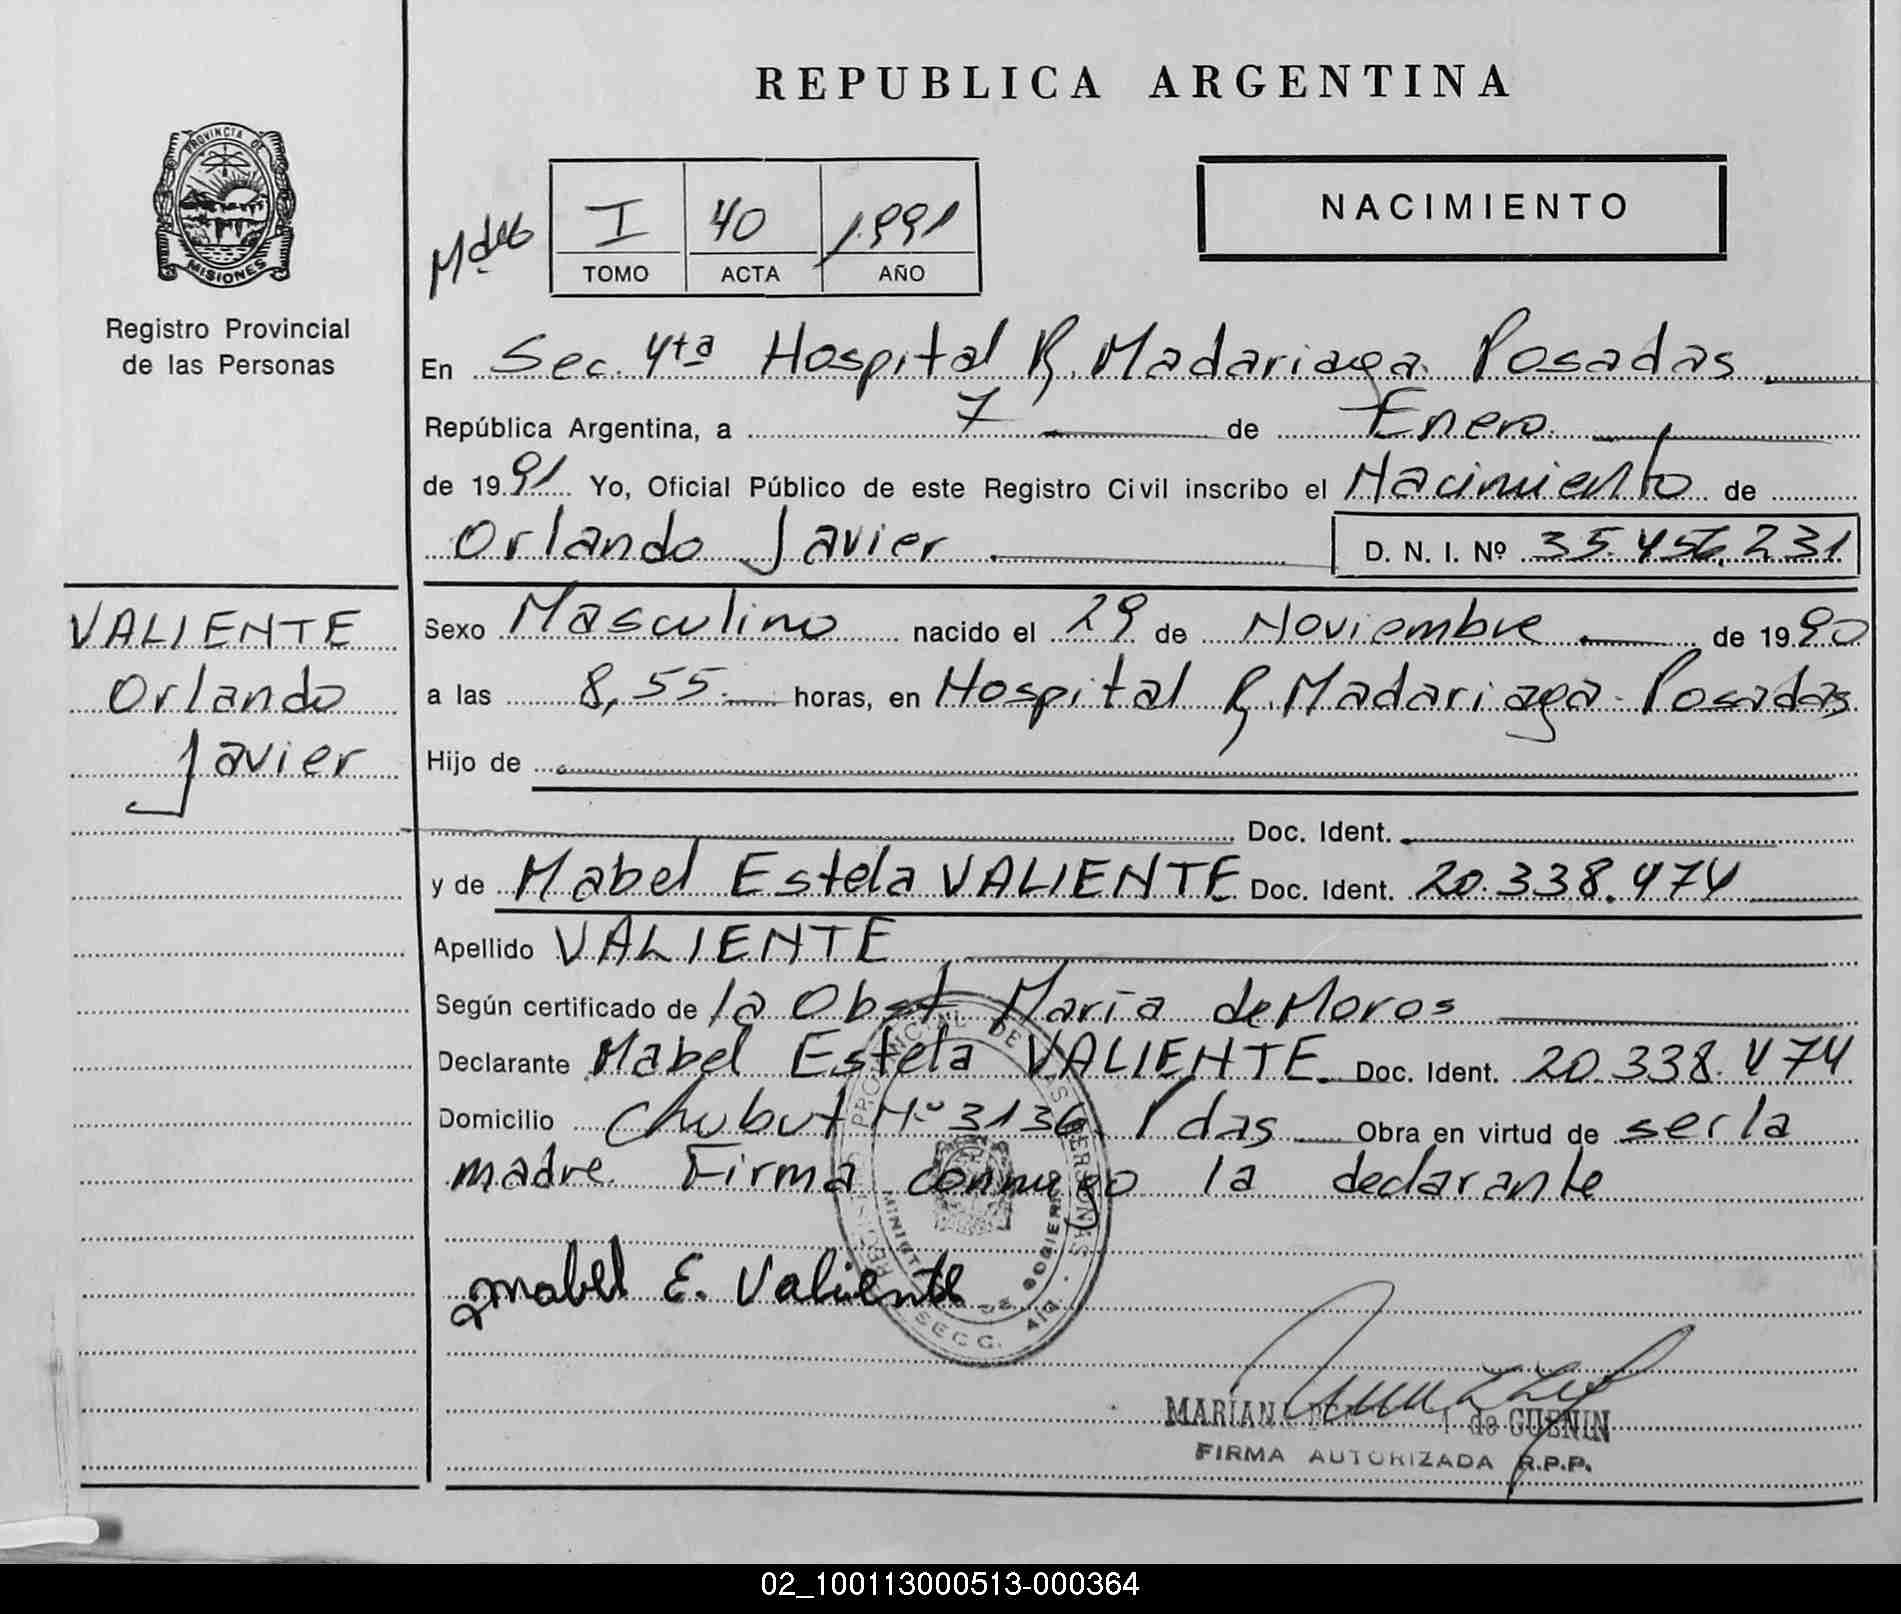 REPUBLICA ARGENTINA
PROVINCIA DE
MISIONES
Registro Provincial
de las Personas
I 40 1.991
TOMO ACTA AÑO
NACIMIENTO
En Sec. 4ta Hospital R. Madariaga. Posadas
República Argentina, a 7 de Enero
de 1991 Yo, Oficial Público de este Registro Civil inscribo el Nacimiento de
Orlando Javier D. N. I. Nº 35.456.231
VALIENTE
Orlando
Javier
Sexo Masculino nacido el 29 de Noviembre de 1990
a las 8,55 horas, en Hospital R. Madariaga - Posadas
Hijo de
Doc. Ident.
y de Mabel Estela VALIENTE Doc. Ident. 20.338.474
Apellido VALIENTE
Según certificado de la Obst María de Moros
Declarante Mabel Estela VALIENTE. Doc. Ident. 20.338.474
Domicilio Chubut Nº 3136 Pdas Obra en virtud de ser la
madre. Firma conmigo la declarante
Mabel E. Valiente
PROVINCIAL DE LAS PERSONAS
DE GOBIERNO
SECC. 4ta
de GUENIN
FIRMA AUTORIZADA R.P.P.
02_100113000513-000364